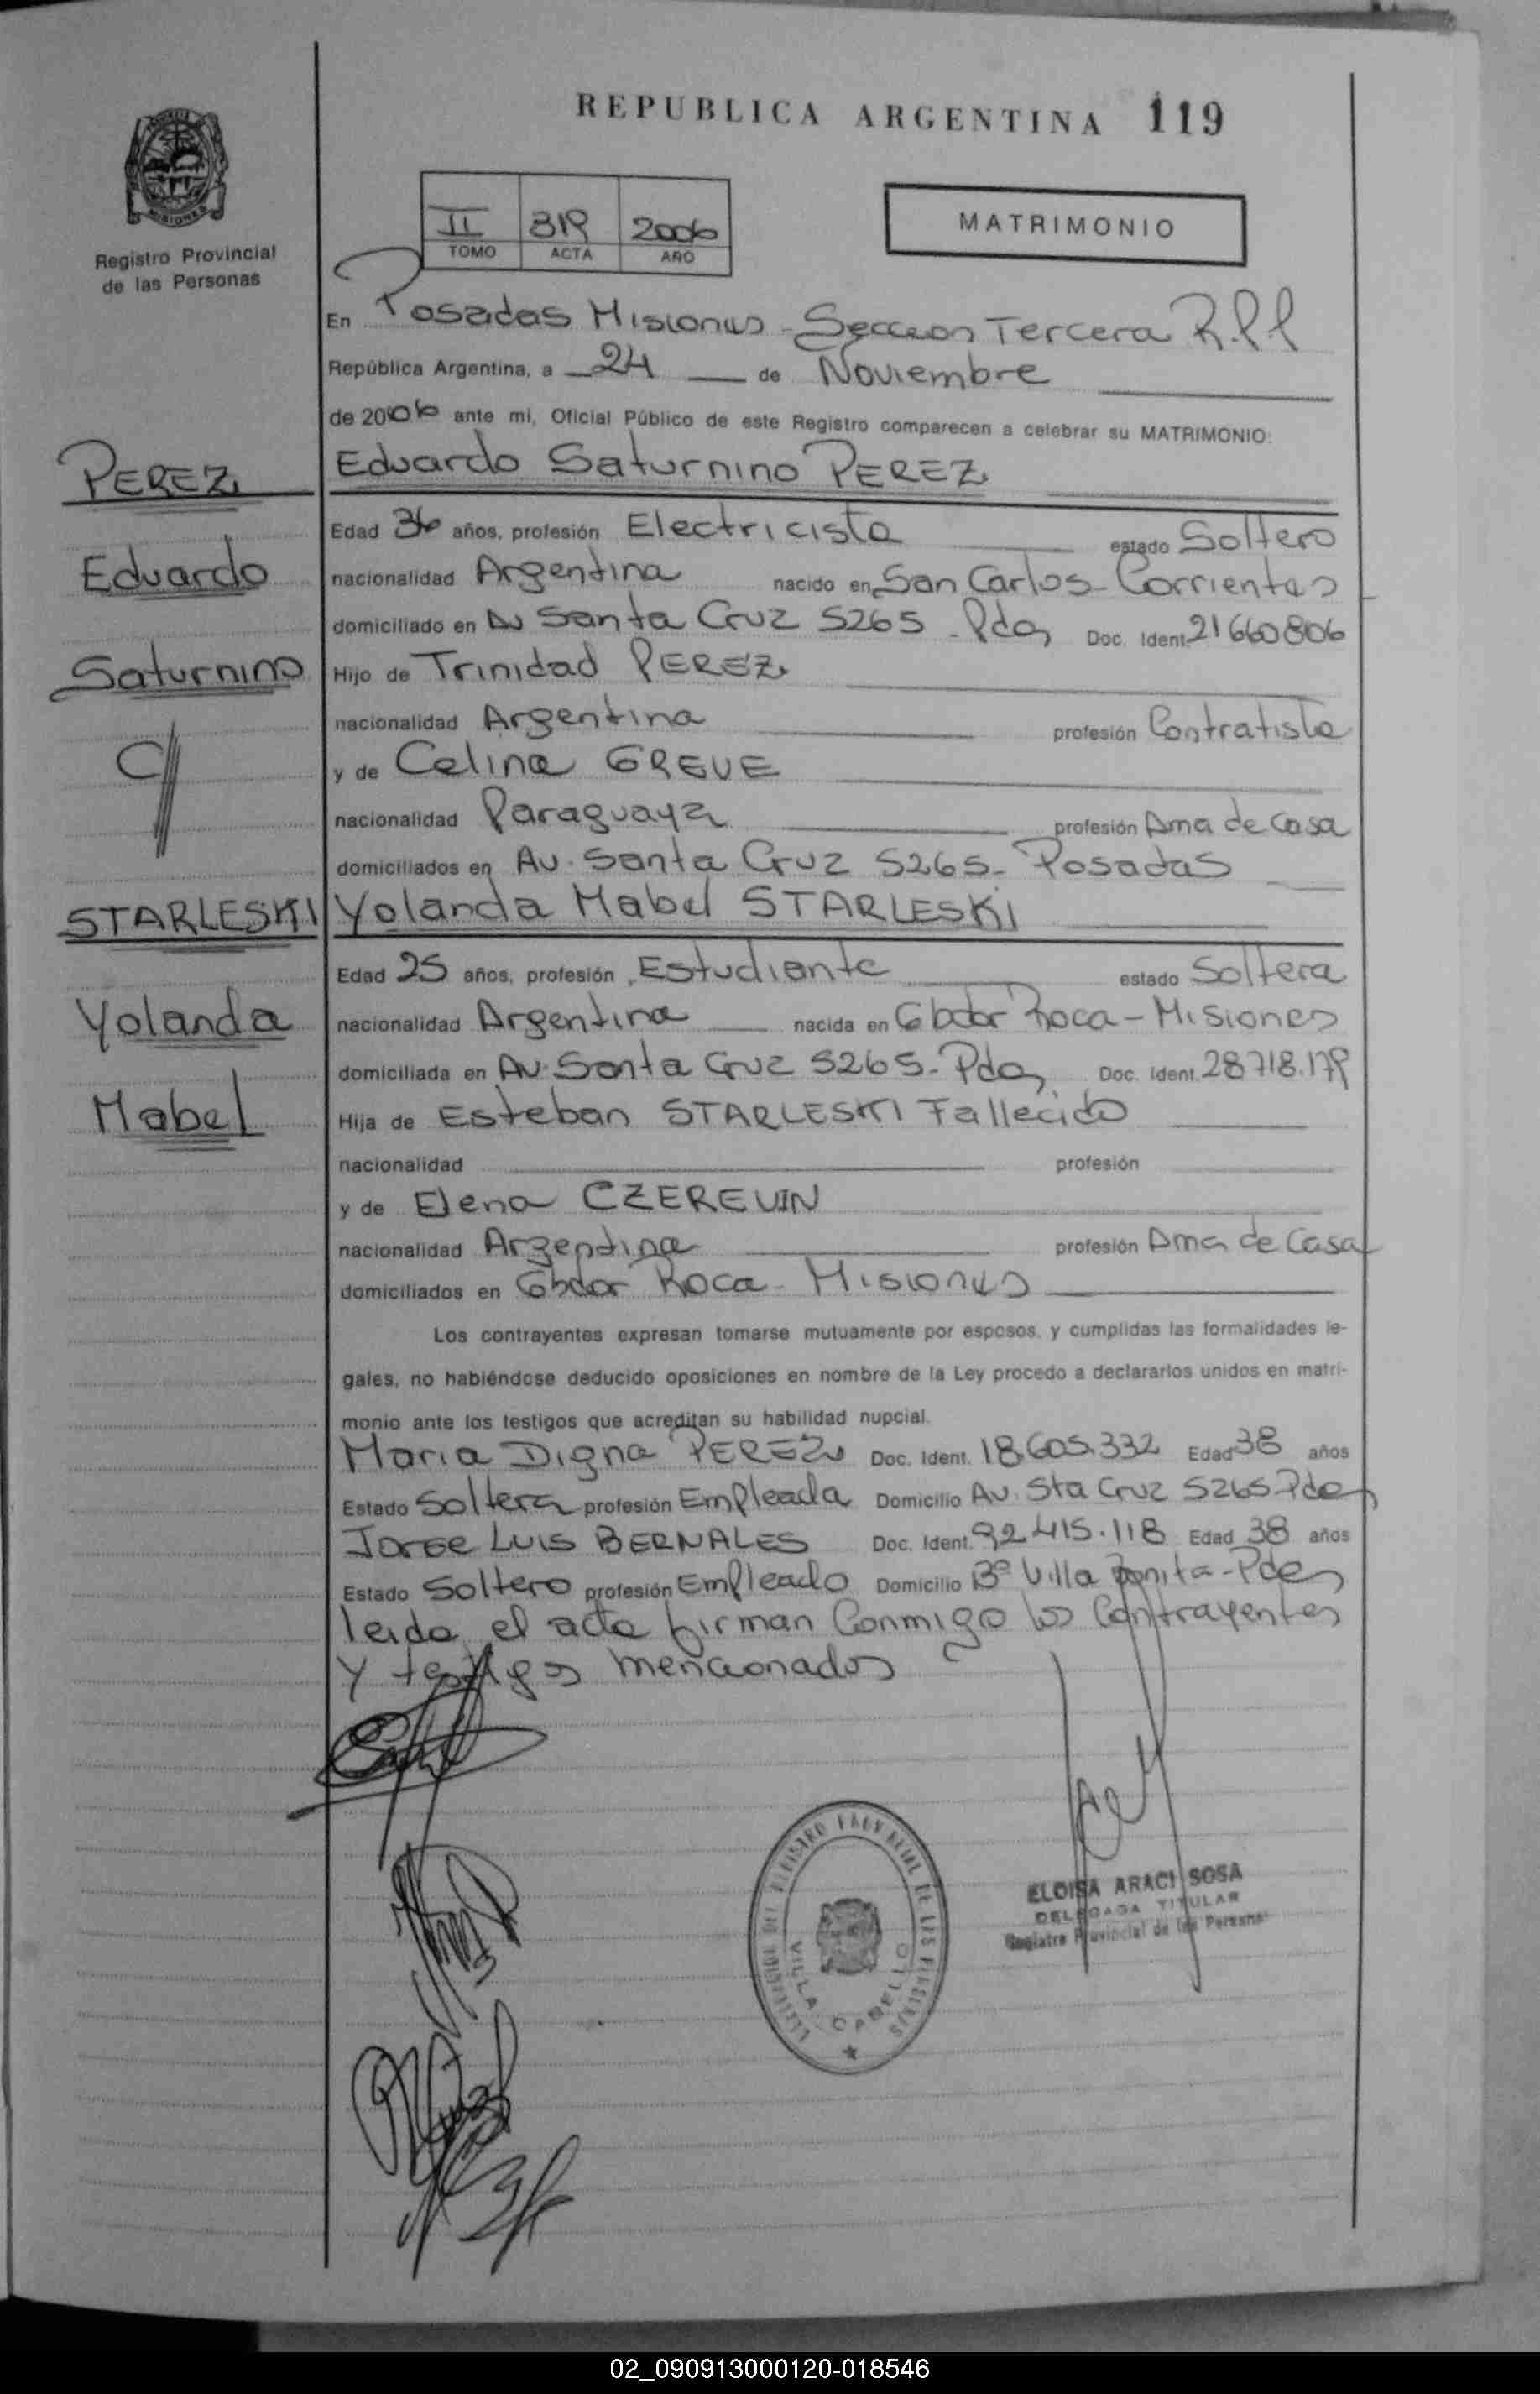 REPUBLICA ARGENTINA 119
MISIONES
Registro Provincial
de las Personas
II 319 2006
TOMO ACTA AÑO
MATRIMONIO
En Posadas Misiones - Seccion Tercera R.P.P
República Argentina, a 24 de Noviembre
de 2006 ante mi, Oficial Público de este Registro comparecen a celebrar su MATRIMONIO:
PEREZ
Eduardo Saturnino PEREZ
Edad 36 años, profesión Electricista estado Soltero
Eduardo
nacionalidad Argentina nacido en San Carlos - Corrientes
domiciliado en Av Santa Cruz 5265 - Pdas Doc. Ident. 21660806
Saturnino
Hijo de Trinidad PEREZ
nacionalidad Argentina profesión Contratista
y de Celina GREVE
nacionalidad Paraguaya profesión Ama de Casa
domiciliados en Av. Santa Cruz 5265 - Posadas
STARLESKI
Yolanda Mabel STARLESKI
Edad 25 años, profesión Estudiante estado Soltera
Yolanda
nacionalidad Argentina nacida en Gbdor Roca - Misiones
domiciliada en Av. Santa Cruz 5265 - Pdas Doc. Ident. 28718.179
Mabel
Hija de Esteban STARLESKI Fallecido
nacionalidad profesión
y de Elena CZEREVIN
nacionalidad Argentina profesión Ama de Casa
domiciliados en Gbdor Roca - Misiones
Los contrayentes expresan tomarse mutuamente por esposos, y cumplidas las formalidades le-
gales, no habiéndose deducido oposiciones en nombre de la Ley procedo a declararlos unidos en matri-
monio ante los testigos que acreditan su habilidad nupcial.
Maria Digna PEREZ Doc. Ident. 18.605.332 Edad 38 años
Estado Soltera profesión Empleada Domicilio Av. Sta Cruz 5265 Pdas
Jorge Luis BERNALES Doc. Ident. 92.415.118 Edad 38 años
Estado Soltero profesión Empleado Domicilio Bº Villa Bonita - Pdas
leida el acta firman Conmigo los Contrayentes
y testigos mencionados
VILLA CABELLO
ELOISA ARACI SOSA
DELEGADA TITULAR
Registro Provincial de las Personas
02_090913000120-018546